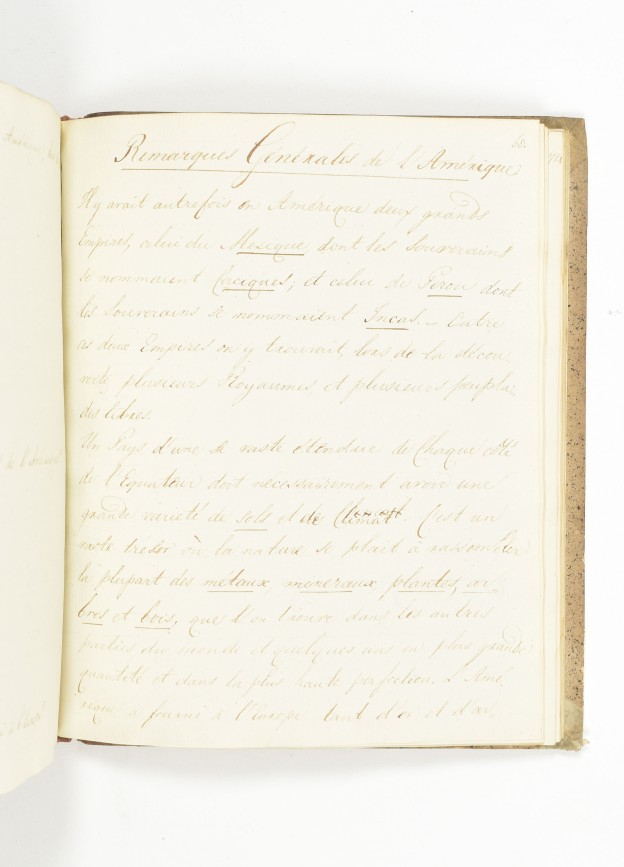 68.
Remarques Générales de l'Amérique
Il y avait autrefois en Amérique deux grands
Empires, celui du Mexique, dont les Souverains
se nommaient Caciques; et celui de Perou dont
les Souverains se nommaient Incas. _ Outre
ces deux Empires on y trouvait, lors de la décou
verte plusieurs Royaumes et plusieurs peupla:
des libres.
Un Pays d'une si vaste étendue de Chaque côté
de l'Equateur doit nécessairement avoir une
grande varieté de sols et de Climat. C'est un
vaste trésor où la nature se plait à rassembler
la plupart des métaux, mineraux, plantes, ar_
bres et bois, que l'on trouve dans les autres
parties du monde et quelques uns en plus grande
quantité et dans la plus haute perfection. L'Amé
rique a fourni à l'Europe tant d'or et d'ar_